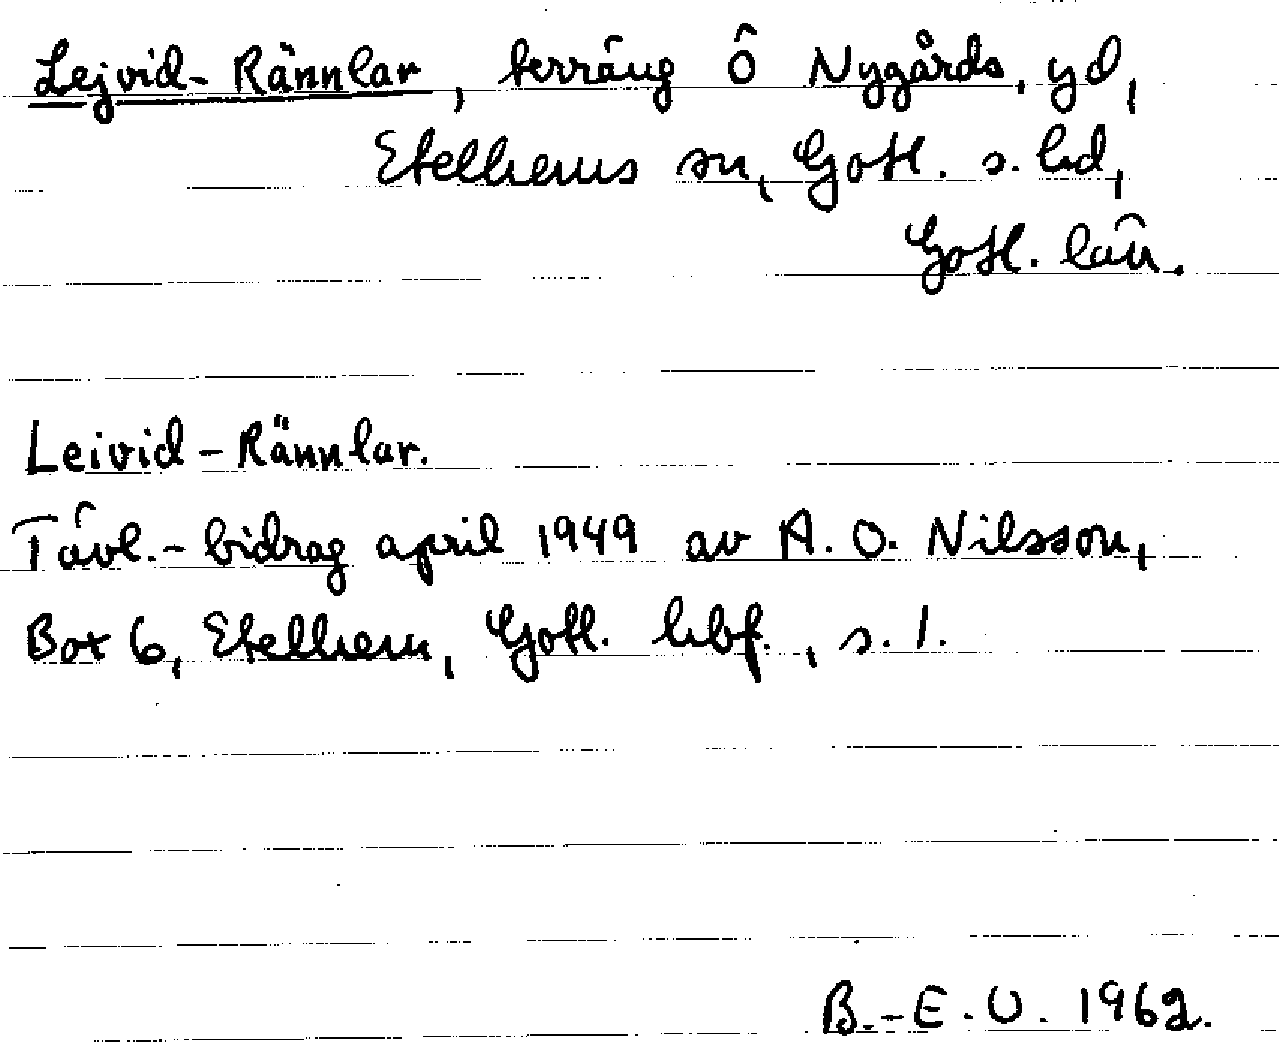 Lejvid-Rännlar, terräng Ö Nygårds, yd,
Etelhems sn, Gotl. s. hd,
Gotl. län.
Leivid-Rännlar.
Tävl.-bidrag april 1949 av A. O. Nilsson,
Box 6, Etelhem, Gotl. hbf., s. 1.
B.-E. U. 1962.